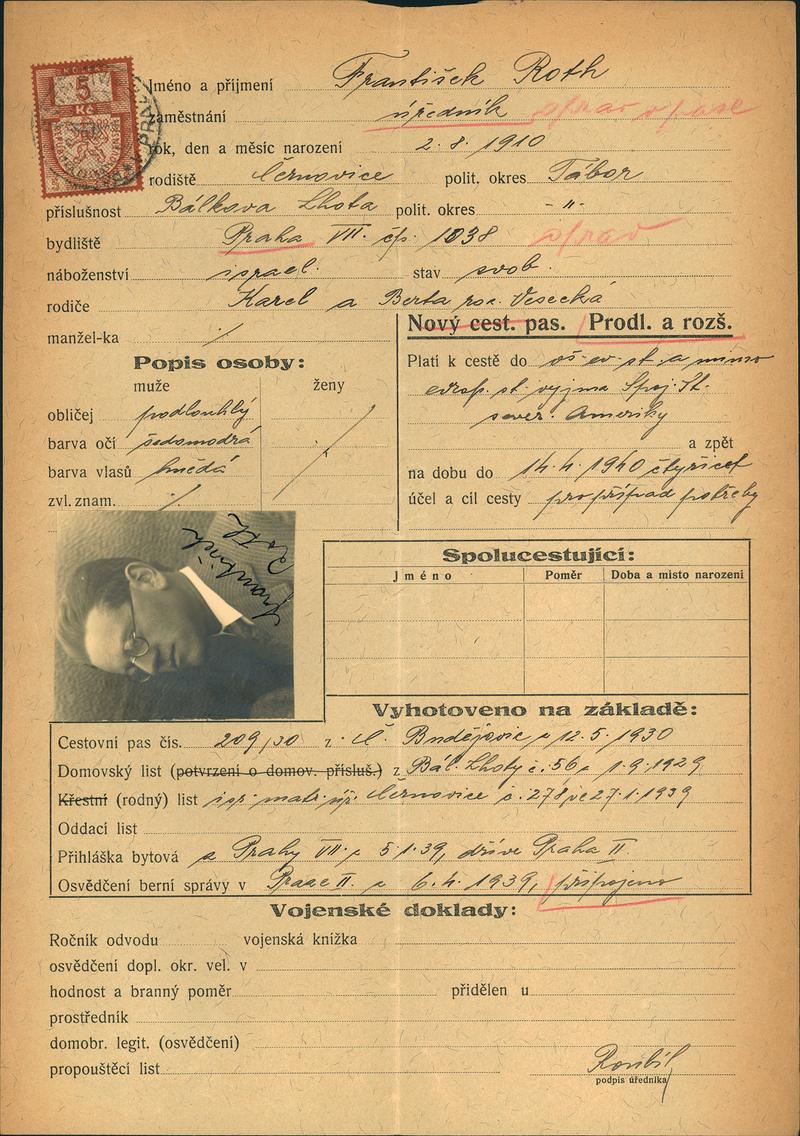 5
Kč
Jméno a příjmení František Roth
zaměstnání úředník oprav v pase
rok, den a měsíc narození 2. 8. 1910
rodiště Černovice polit. okres Tábor
příslušnost Bálkova Lhota polit. okres - " -
bydliště Praha VII. čp. 1038 oprav
náboženství israel. stav svob.
rodiče Karel a Berta roz. Vesecká
manžel-ka /
Nový cest. pas. Prodl. a rozš.
Popis osoby:
muže ženy
obličej podlouhlý
barva očí šedomodrá
barva vlasů hnědá
zvl. znam. /
Platí k cestě do vš. ev. st. a mimo
evrop. st. vyjma Spoj. St.
sever. Ameriky
a zpět
na dobu do 14. 4. 1940 čtyřicet
účel a cíl cesty pro případ potřeby
František
Roth
Spolucestující:
Jméno Poměr Doba a místo narození
Vyhotoveno na základě:
Cestovní pas čís. 209/30 z Č. Budějovic 12. 5. 1930
Domovský list (potvrzení o domov. přísluš.) z Bál. Lhoty č. 56 1. 9. 1929
Křestní (rodný) list isr. matr. úř. Černovice č. 278 ze 27. 1. 1939
Oddací list
Přihláška bytová z Prahy VII. z 5. 1. 39, dříve Praha II.
Osvědčení berní správy v Praze II. z 6. 4. 1939, připojeno
Vojenské doklady:
Ročník odvodu vojenská knížka
osvědčení dopl. okr. vel. v
hodnost a branný poměr přidělen u
prostředník
domobr. legit. (osvědčení)
propouštěcí list
podpis úředníka